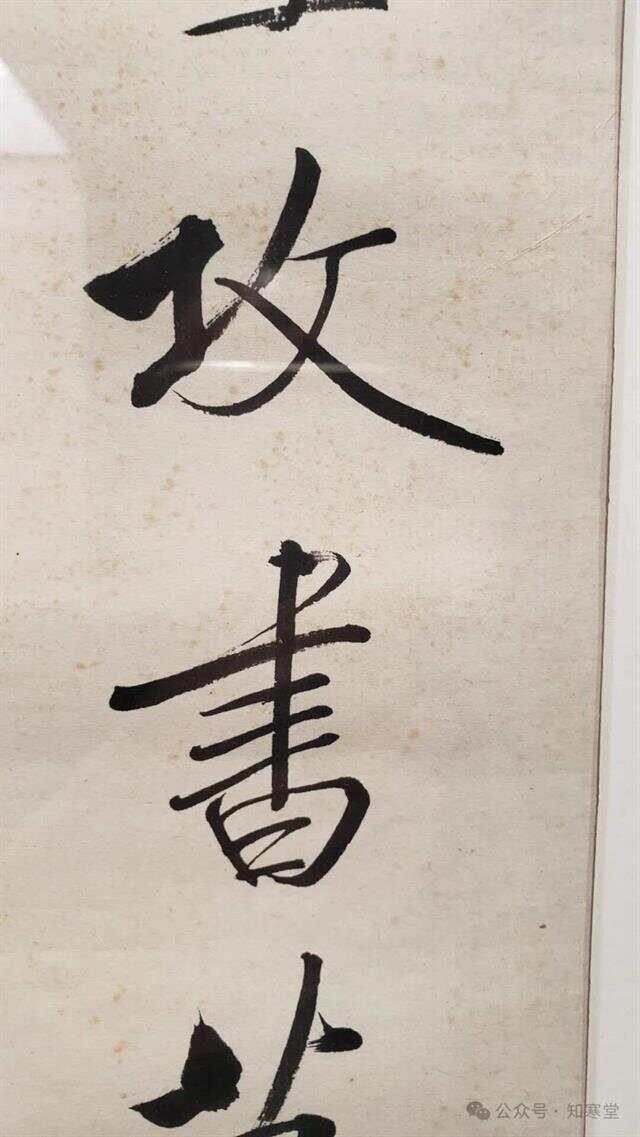 攻書
公众号·知寒堂